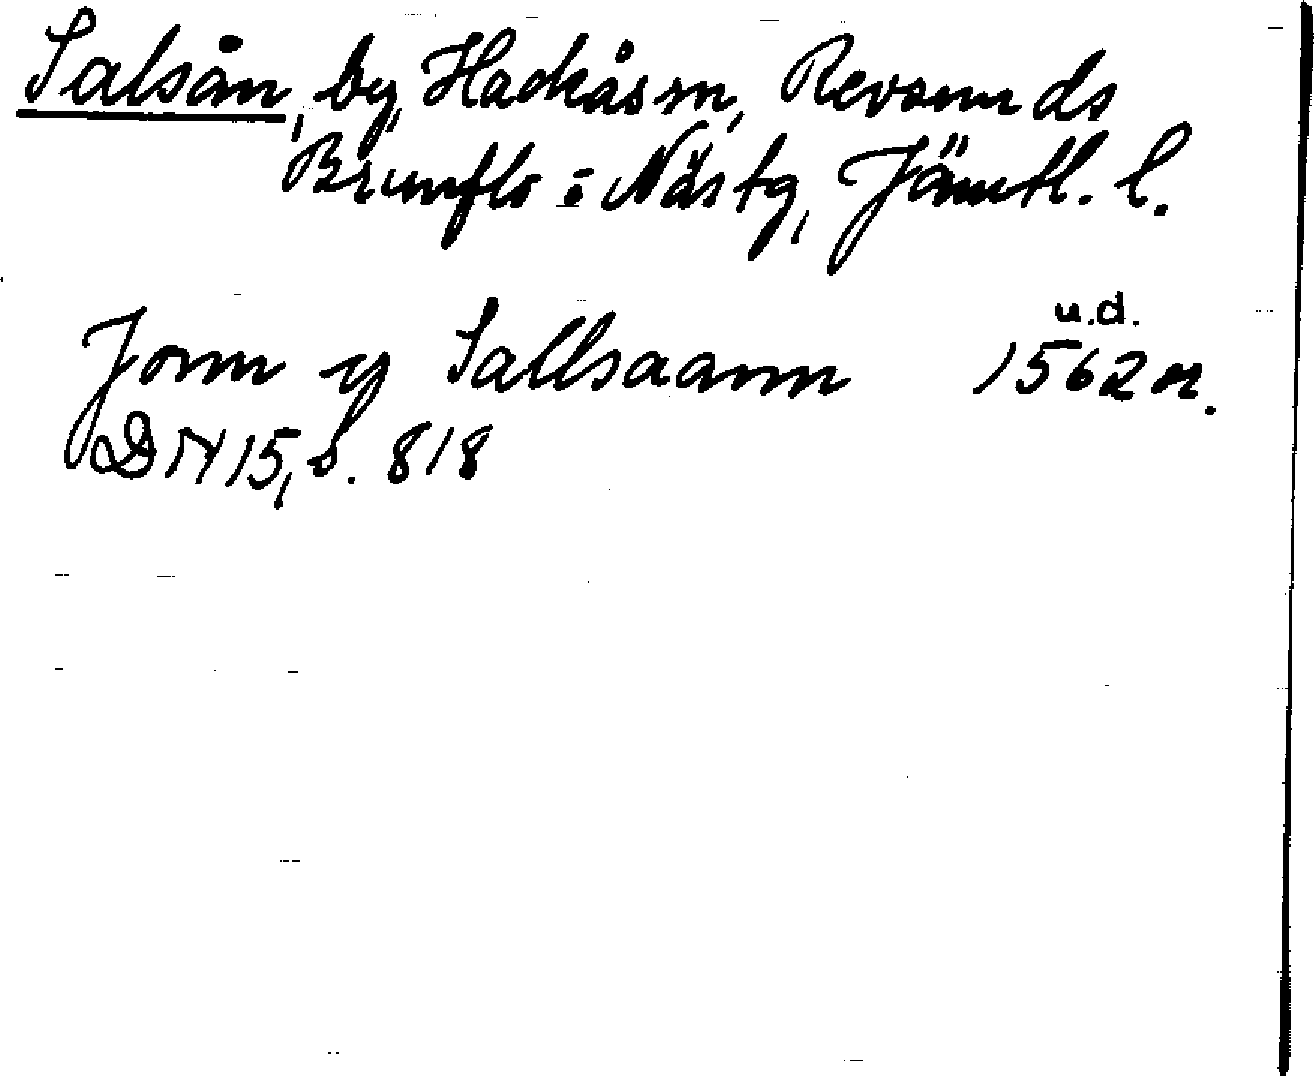 Salsån, by, Hackås sn, Revsunds
Brunflo o Näs tg, Jämtl. l.
u.d.
Jonn y Sallsaann 1562 or.
DN 15, s. 818